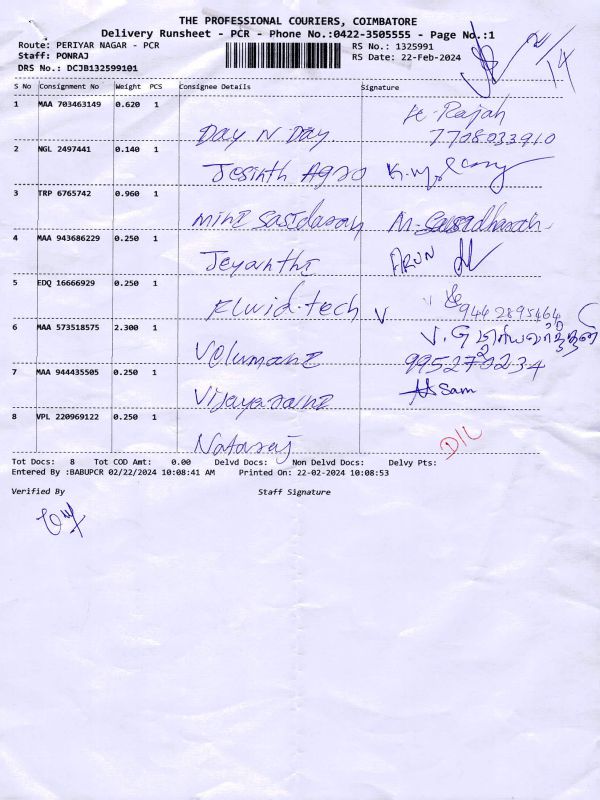 THE PROFESSIONAL COURIERS, COIMBATORE
Delivery Runsheet - PCR - Phone No.:0422-3505555 - Page No.:1
Route: PERIYAR NAGAR - PCR RS No.: 1325991
Staff: PONRAJ RS Date: 22-Feb-2024
DRS No.: DCJB132599101
S No Consignment No Weight PCS Consignee Details Signature
1 MAA 703463149 0.620 1 Day N Day K. Rajah
7708033910
2 NGL 2497441 0.140 1 Jesinth Agro
3 TRP 6765742 0.960 1 mini Sasidaran M. Sasidharan
4 MAA 943686229 0.250 1 Jeyanthi ARUN
5 EDQ 16666929 0.250 1 Fluid-tech V 9442895464
6 MAA 573518575 2.300 1 Velumani V.G
9952732234
7 MAA 944435505 0.250 1 Vijayarani Sam
8 VPL 220969122 0.250 1 Nataraj D/L
Tot Docs: 8 Tot COD Amt: 0.00 Delvd Docs: Non Delvd Docs: Delvy Pts:
Entered By :BABUPCR 02/22/2024 10:08:41 AM Printed On: 22-02-2024 10:08:53
Verified By Staff Signature